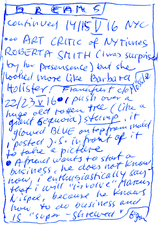 DREAMS
continues 14/15 V 16 NYC
... ART CRITIC of NYTimes
ROBERTA SMITH (I was surprised
by her presence) but she
looked more like Barbara
Holister! Frankfurt
22/23 V 16 I push over a
huge old rotten tree (like a
giant Sequoia) stump, it
glowed BLUE on top from inside
I posted J.S. in front of it
to take a picture
• A friend wants to start a
business, he does not know
how, I enthusiastically say
that I will "involve" Marcus
because he knows
how to do business and
is "super-shrewd"